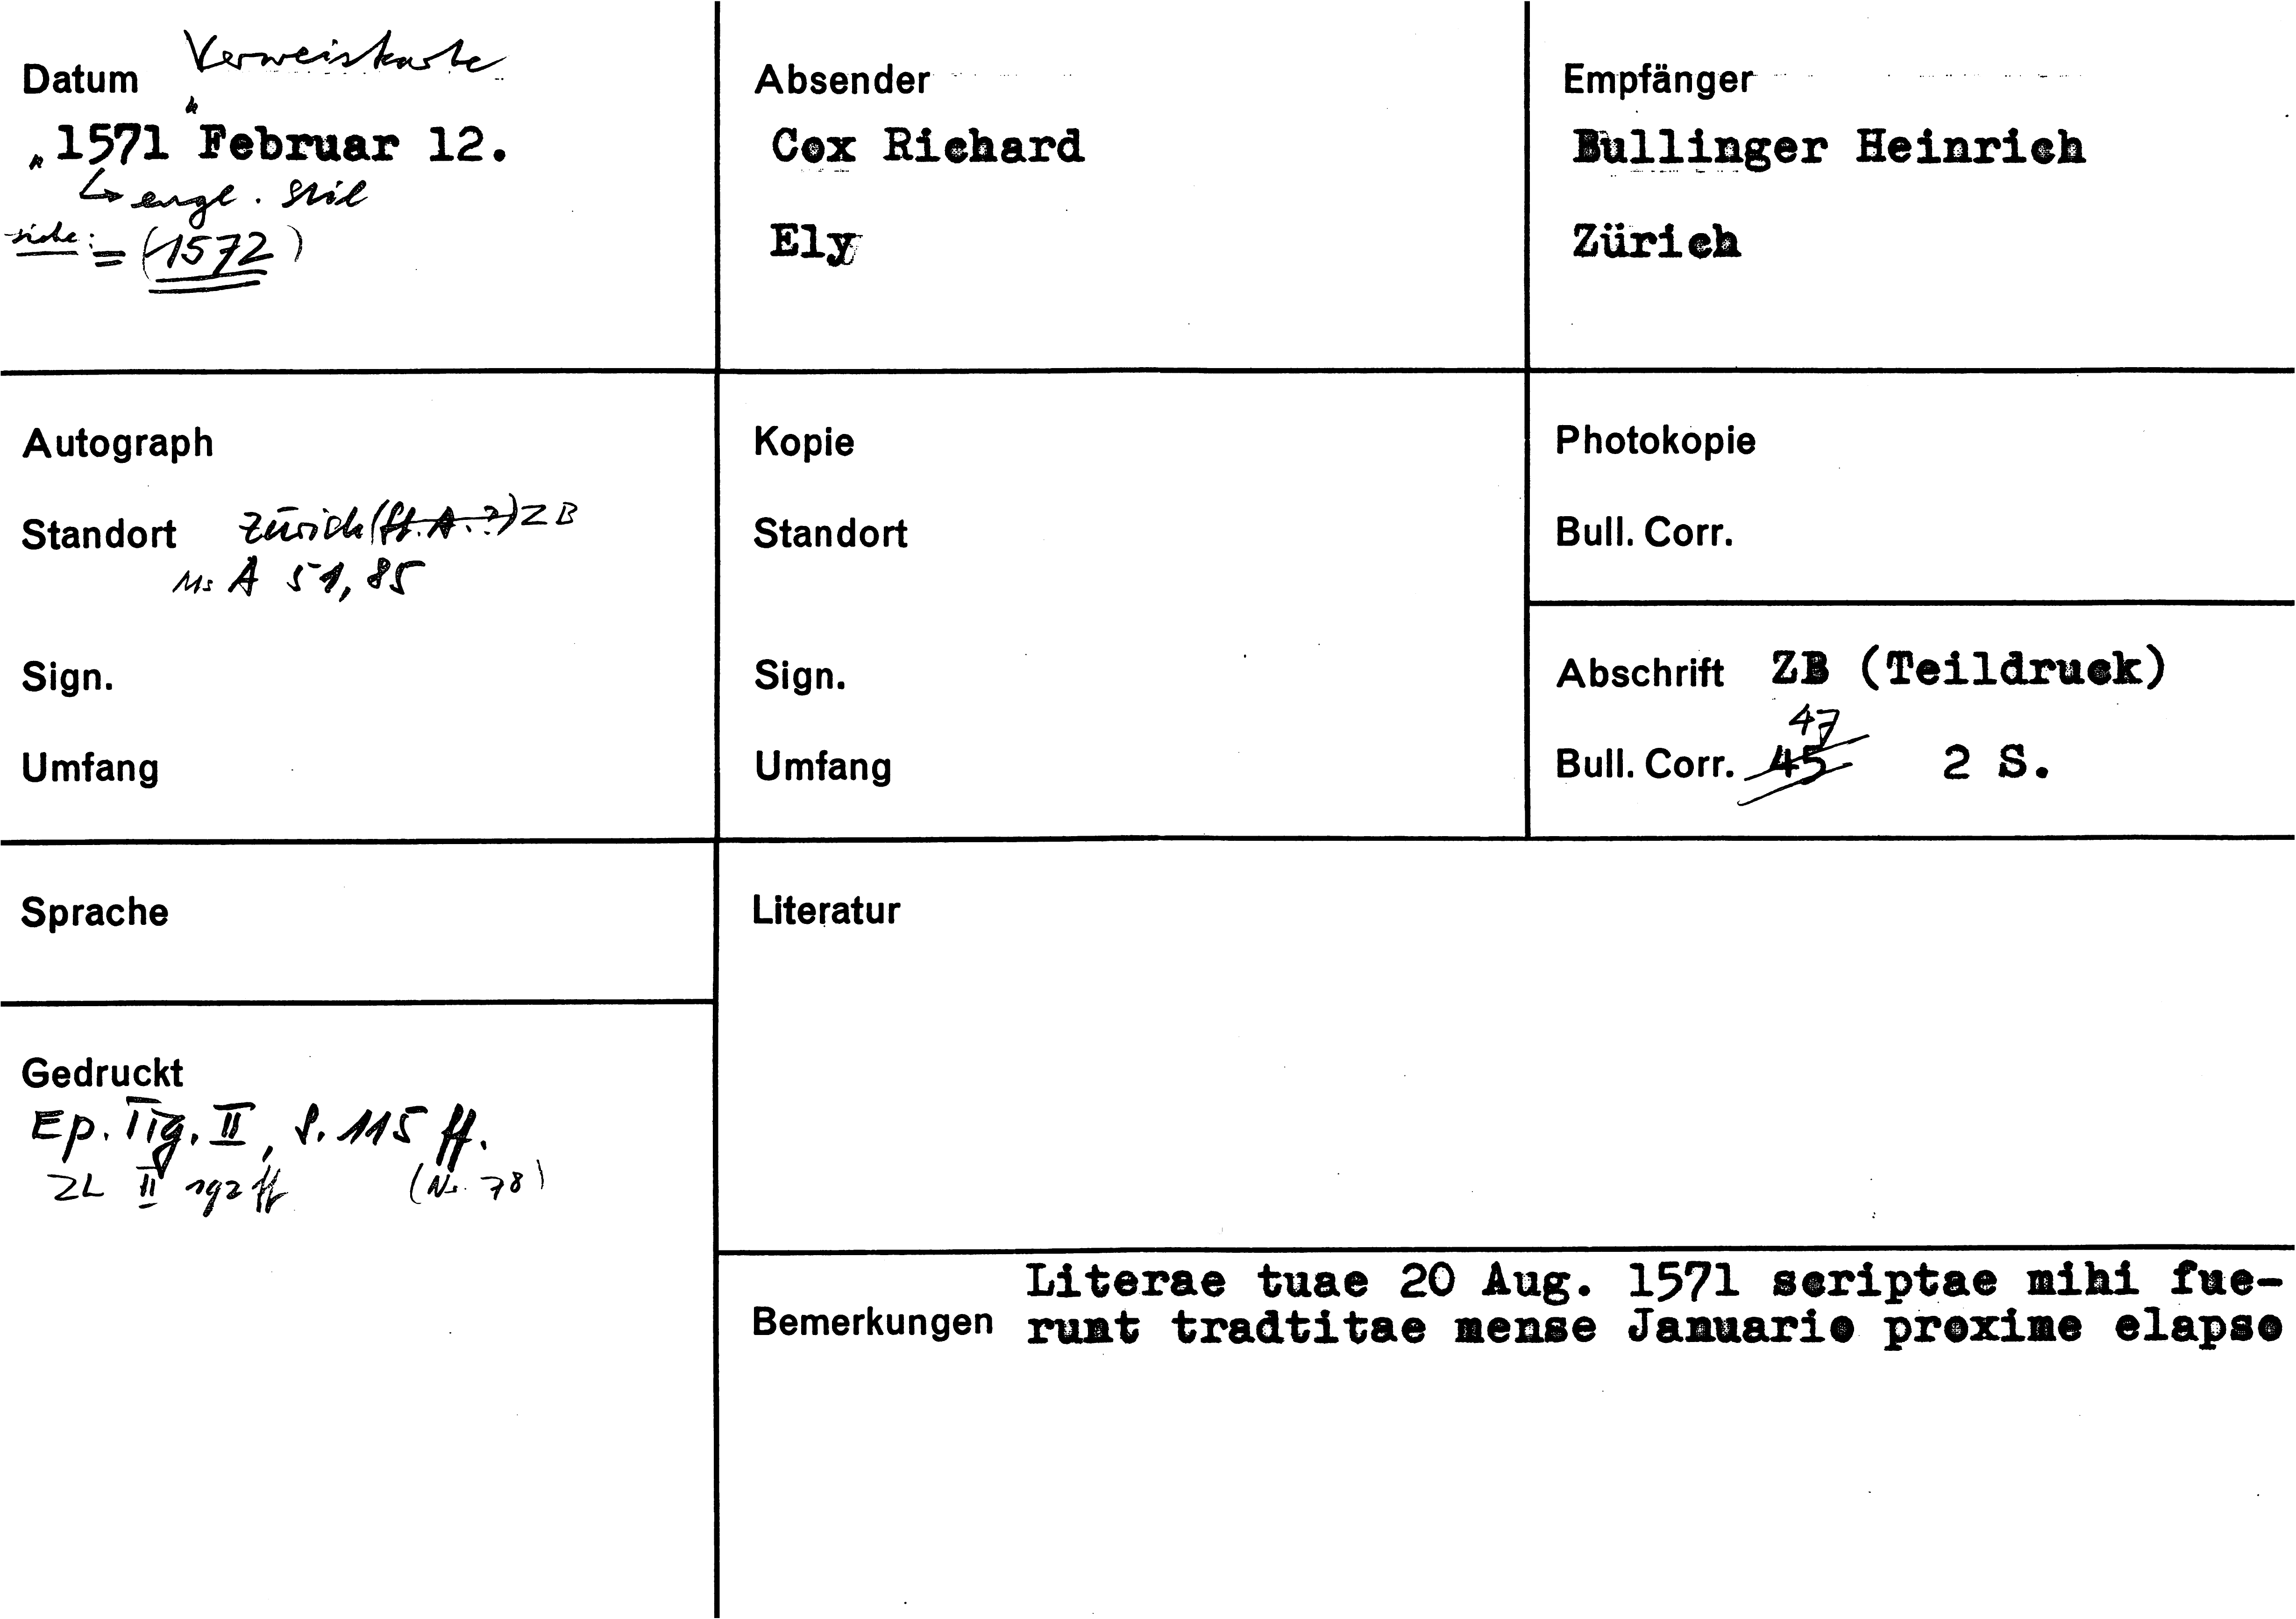 Datum Verweiskarte
„1571“ Februar 12.
↳ engl. Stil
siehe: = (1572)
Absender
Cox Richard
Ely
Empfänger
Bullinger Heinrich
Zürich
Autograph
Standort Zürich (St. A. ?) ZB
Ms A 51, 85
Sign.
Umfang
Kopie
Standort
Sign.
Umfang
Photokopie
Bull. Corr.
Abschrift ZB (Teildruck)
47
Bull. Corr. 45 2 S.
Sprache
Gedruckt
Ep. Tig. II, S. 115 ff.
ZL II 192 ff (Nr. 78)
Literatur
Literae tuae 20 Aug. 1571 scriptae mihi fue-
Bemerkungen runt tradtitae mense Januario proxime elapso